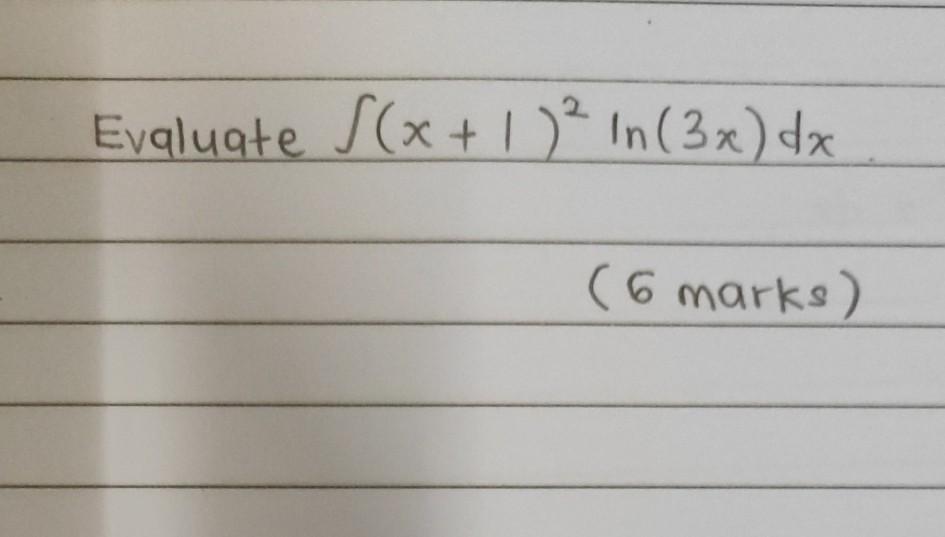 Evaluate ∫(x + 1)² ln(3x) dx
(6 marks)